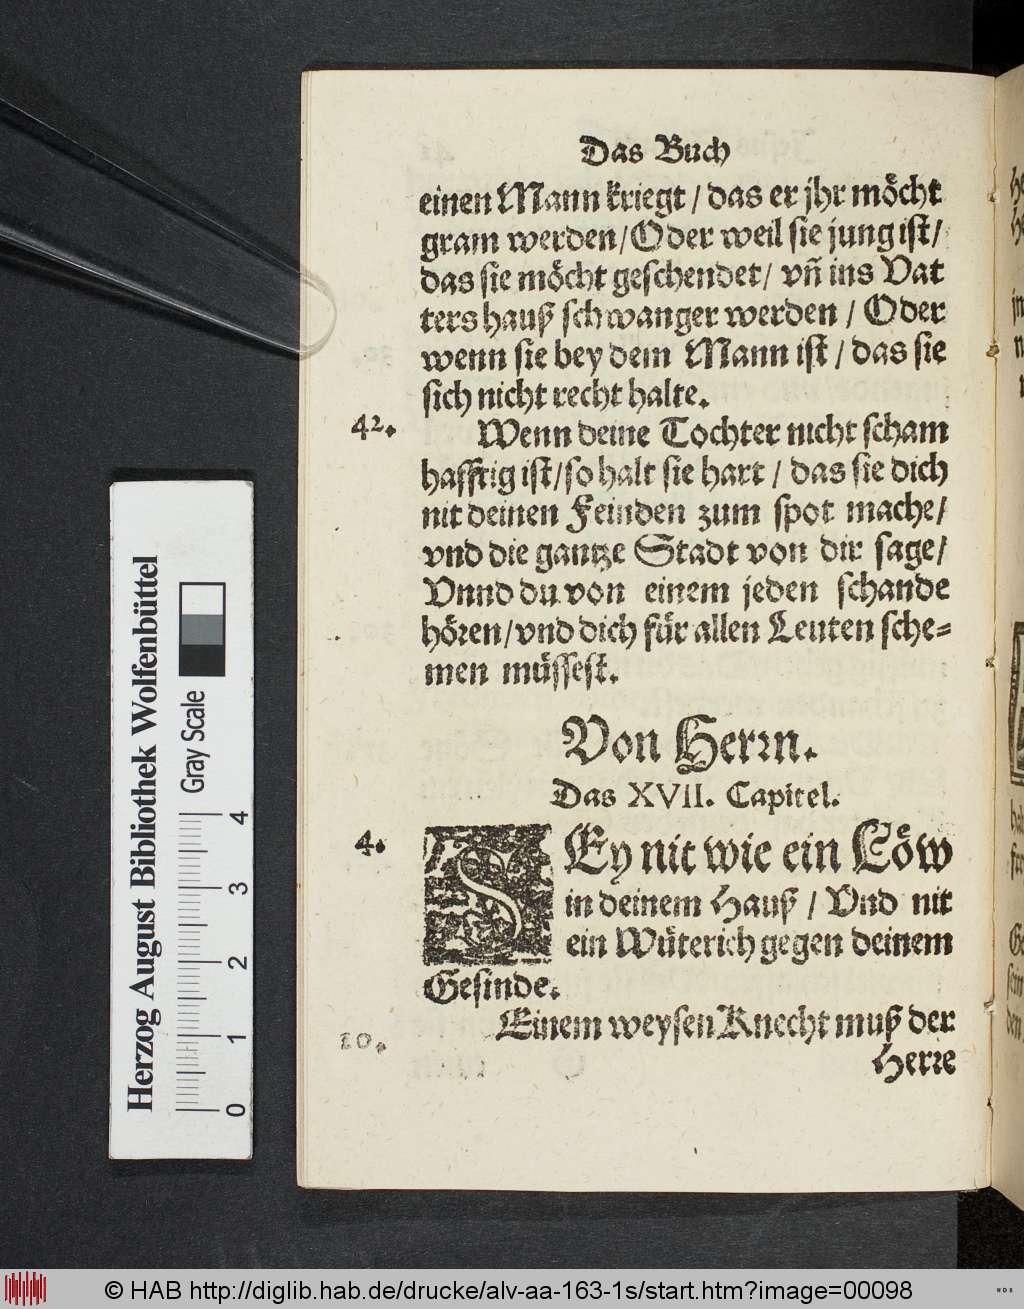 Das Buch
einen Mann kriegt / das er jhr möcht
gram werden/Oder weil sie jung ist/
das sie möcht geschendet/ vñ ins Vat
ters hauß schwanger werden / Oder
wenn sie bey dem Mann ist / das sie
sich nicht recht halte.
42. Wenn deine Tochter nicht scham
hafftig ist/so halt sie hart / das sie dich
nit deinen Feinden zum spot mache/
vnd die gantze Stadt von dir sage/
Vnnd du von einem jeden schande
hören/vnd dich für allen Leuten sche=
men müssest.
Von Herrn.
Das XVII. Capitel.
4. SEy nit wie ein Löw
in deinem Hauß / Vnd nit
ein Wüterich gegen deinem
Gesinde.
10. Einem weysen Knecht muß der
Herre
Herzog August Bibliothek Wolfenbüttel
Gray Scale
0 1 2 3 4
© HAB http://diglib.hab.de/drucke/alv-aa-163-1s/start.htm?image=00098